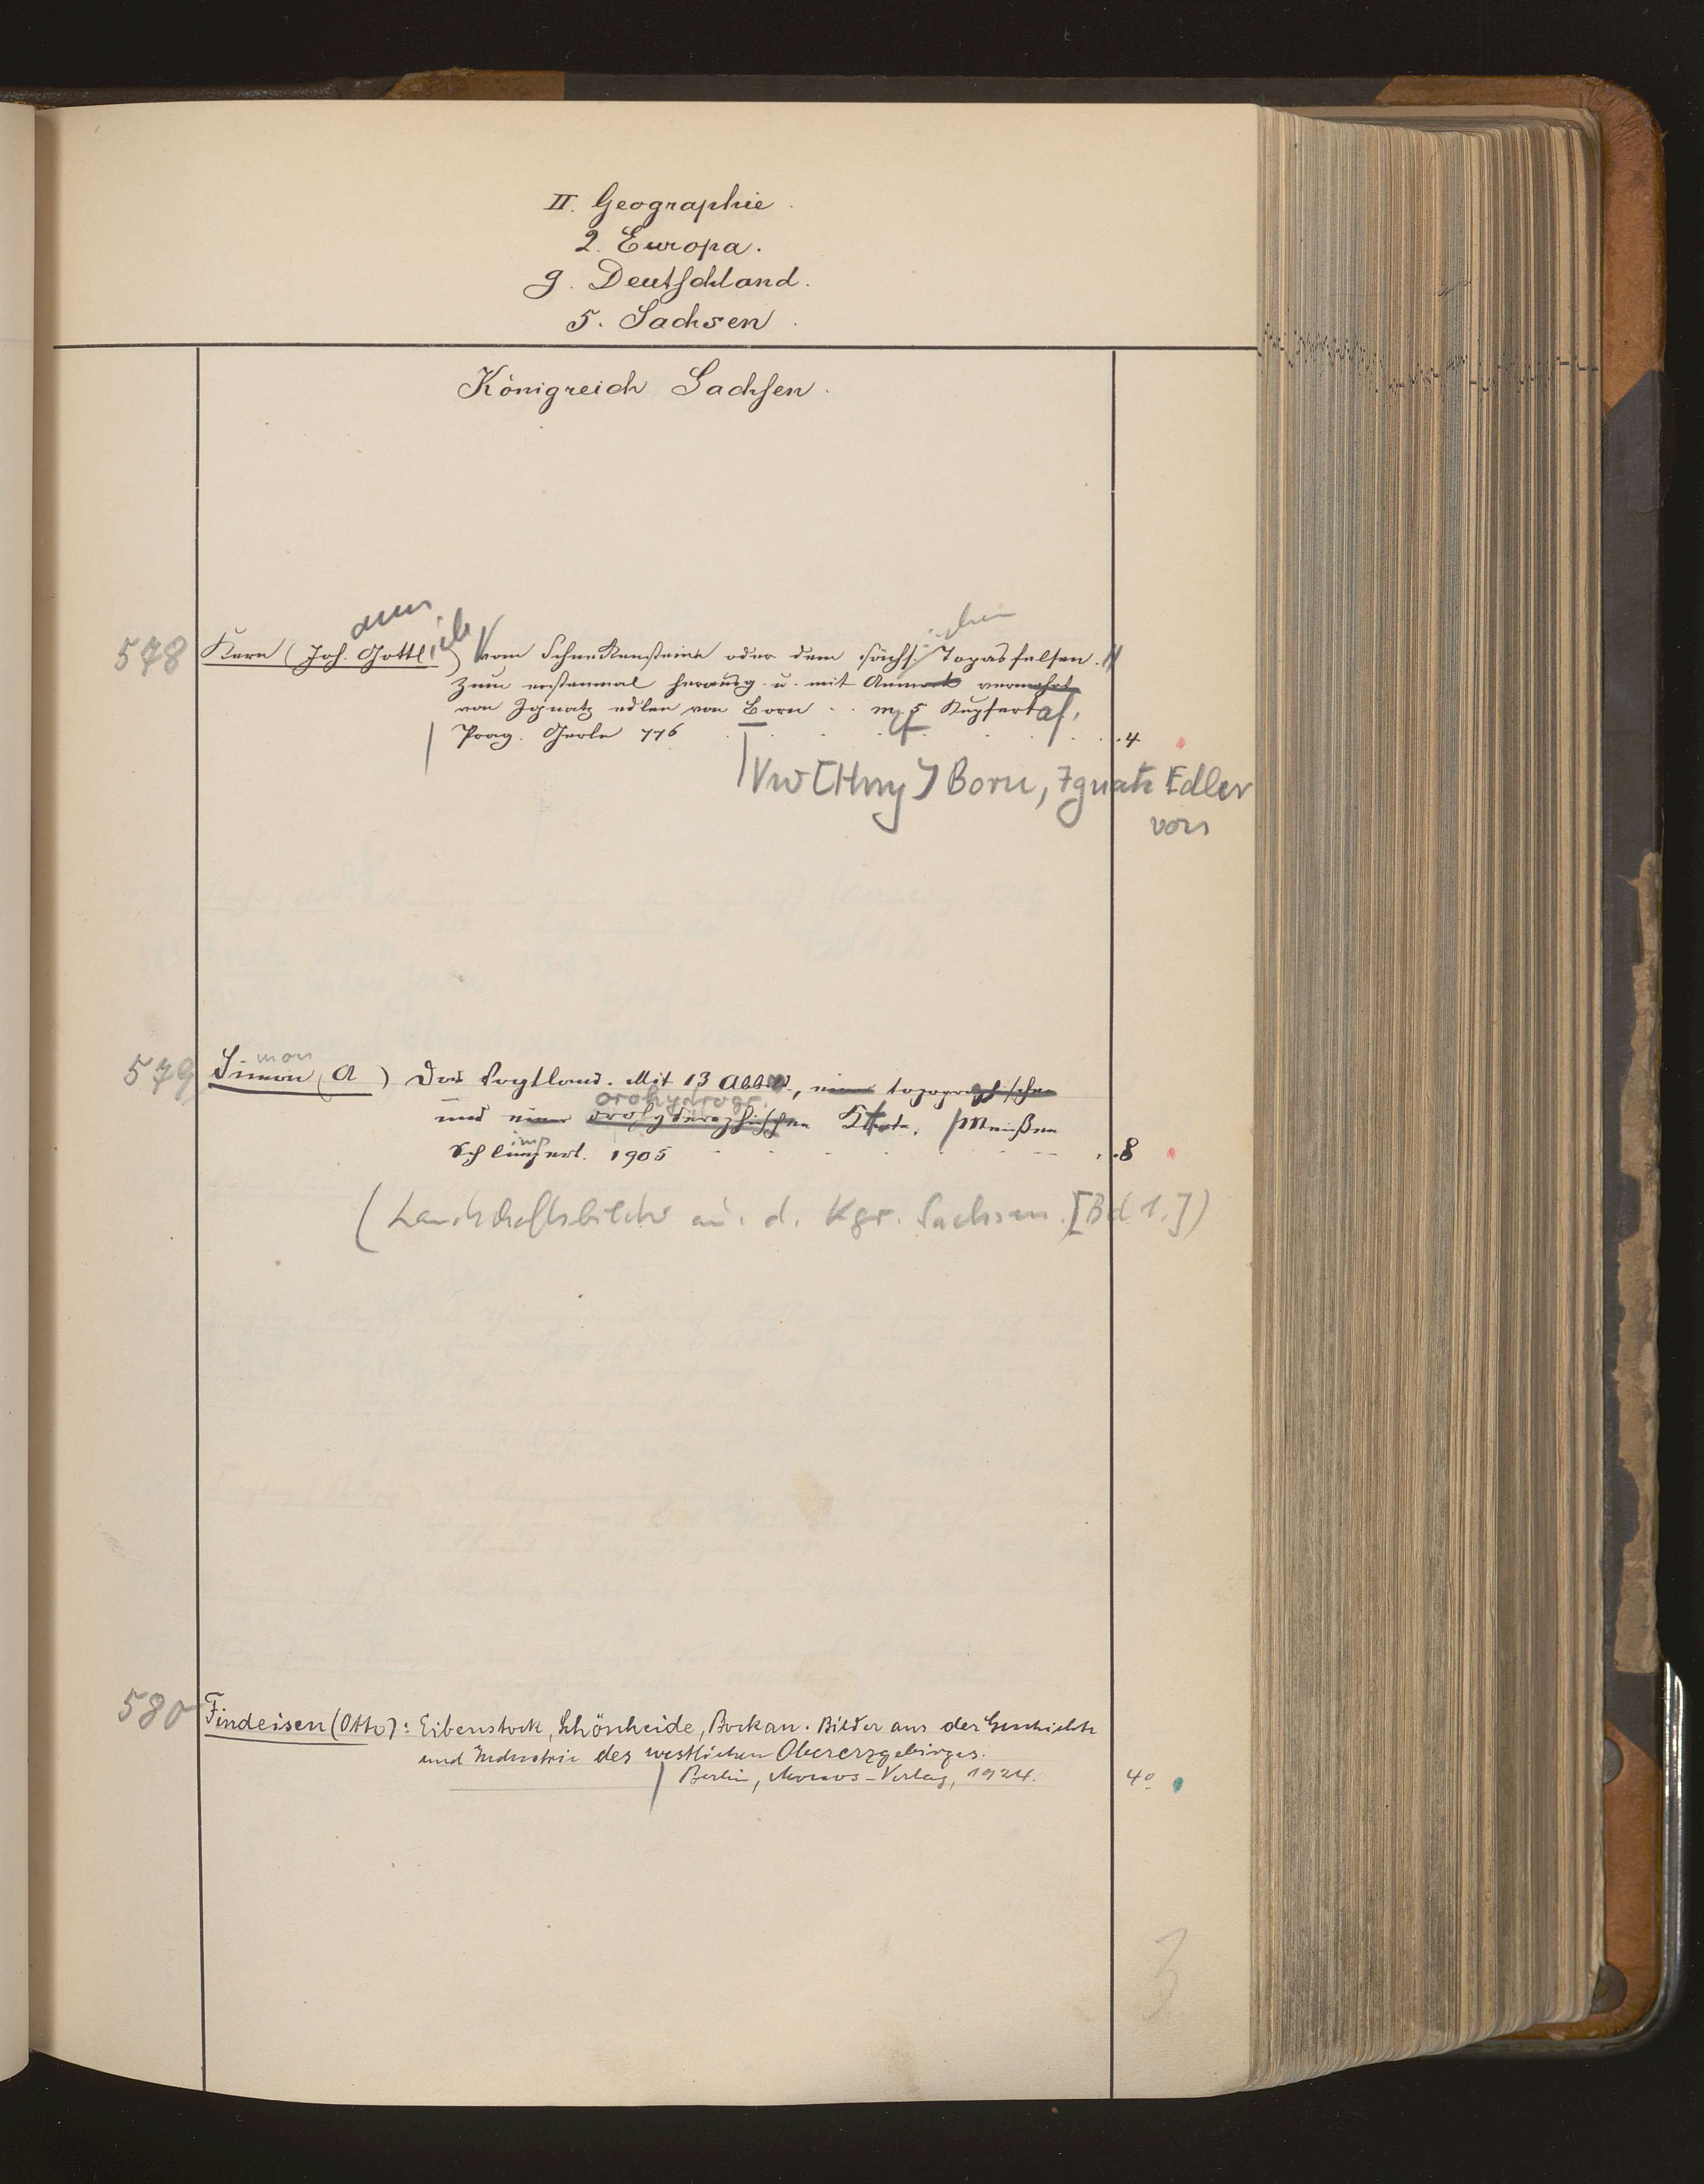 II. Geographie.
2. Europa.
g. Deutschland.
5. Sachsen.
Königreich Sachsen.
ann
ieb
ischen
578 Kern (Joh. Gottl.) Vom Schneckensteine oder dem sächs. Topasfelsen.
Zum erstenmal herausg. u. mit Anmerk vermehrt
von Ignatz edlen von Born .. m. 5 Kupfertaf.
Prag. Gerle 776 4
Vw [Hrsg] Born, Ignatz Edler
von
mon
579 Simon (A ) Das Vogtland. Mit 13 Abbild., einer topographischen
orohydrogr.
und einer orohydrographischen Karte. Meißen
imp
Schlimpert. 1905 8
(Landschaftsbilder au. d. Kgr. Sachsen. [Bd. 1.])
580 Findeisen (Otto): Eibenstock, Schönheide, Bockau. Bilder aus der Geschichte
und Industrie des westlichen Obererzgebirges.
Berlin, Monos-Verlag, 1924. 4°
3